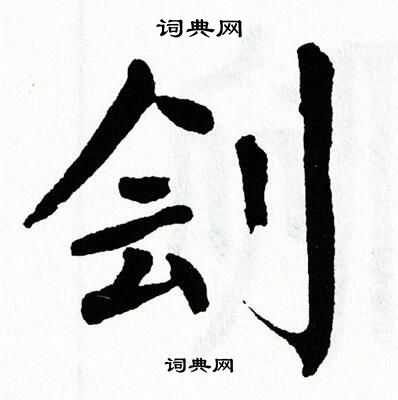 词典网
刽
词典网